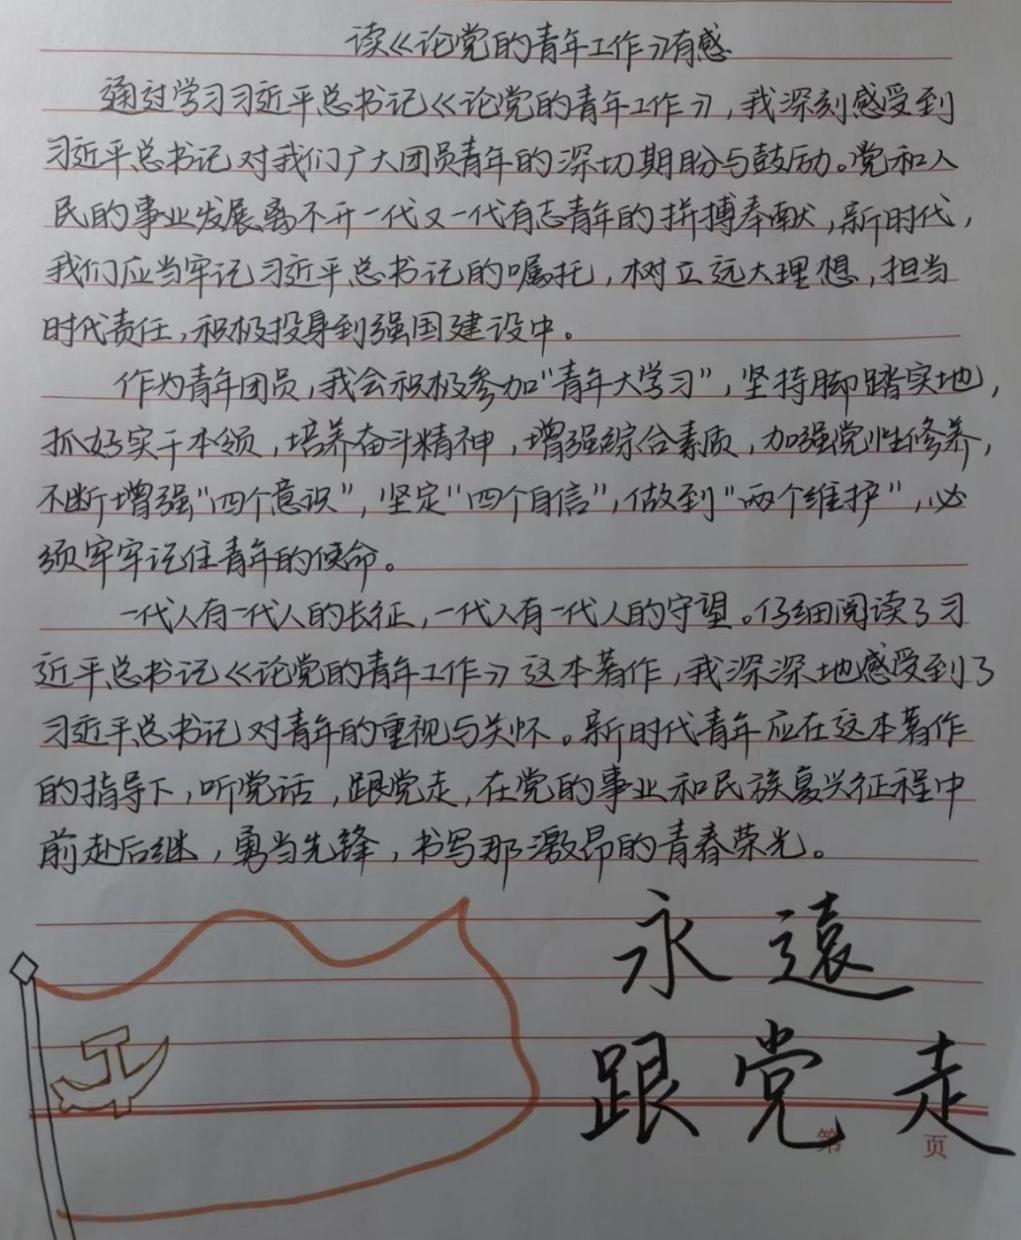 读《论党的青年工作》有感
通过学习习近平总书记《论党的青年工作》，我深刻感受到
习近平总书记对我们广大团员青年的深切期盼与鼓励。党和人
民的事业发展离不开一代又一代有志青年的拼搏奉献，新时代，
我们应当牢记习近平总书记的嘱托，树立远大理想，担当
时代责任，积极投身到强国建设中。
作为青年团员，我会积极参加“青年大学习”，坚持脚踏实地，
抓好实干本领，培养奋斗精神，增强综合素质，加强党性修养，
不断增强“四个意识”，坚定“四个自信”，做到“两个维护”，必
须牢牢记住青年的使命。
一代人有一代人的长征，一代人有一代人的守望。仔细阅读了习
近平总书记《论党的青年工作》这本著作，我深深地感受到了
习近平总书记对青年的重视与关怀。新时代青年应在这本著作
的指导下，听党话，跟党走，在党的事业和民族复兴征程中
前赴后继，勇当先锋，书写那激昂的青春荣光。
永遠
跟党走
第 页